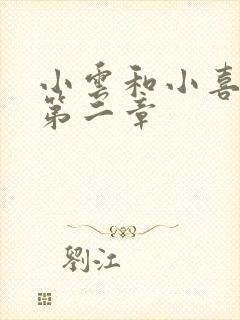 小雲和小喜
第二章
劉江